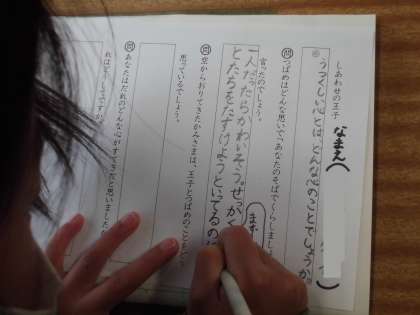 しあわせの王子
なまえ(
)
問
うつくしい
ことでしょうか
問 つばめはどんな思いで「あなたのそばでくらしましょ
言ったのでしょう。
一人だったらかわいそう。せっかく
ともだちをたすけようといてるのに
まず
問 空からおりてきたかみさまは、王子とつばめのことをどう
思っているでしょう。
問 あなたはだれのどんな心がすてきだと思いましたか
それはどうしてですか